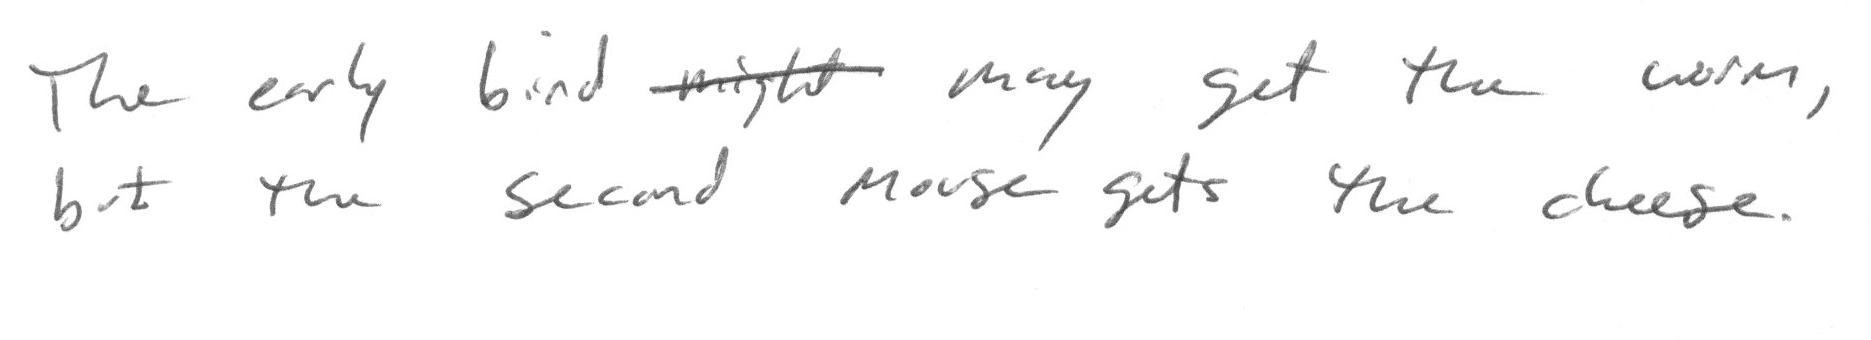 The early bird ~~might~~ may get the worm,
but the second mouse gets the cheese.